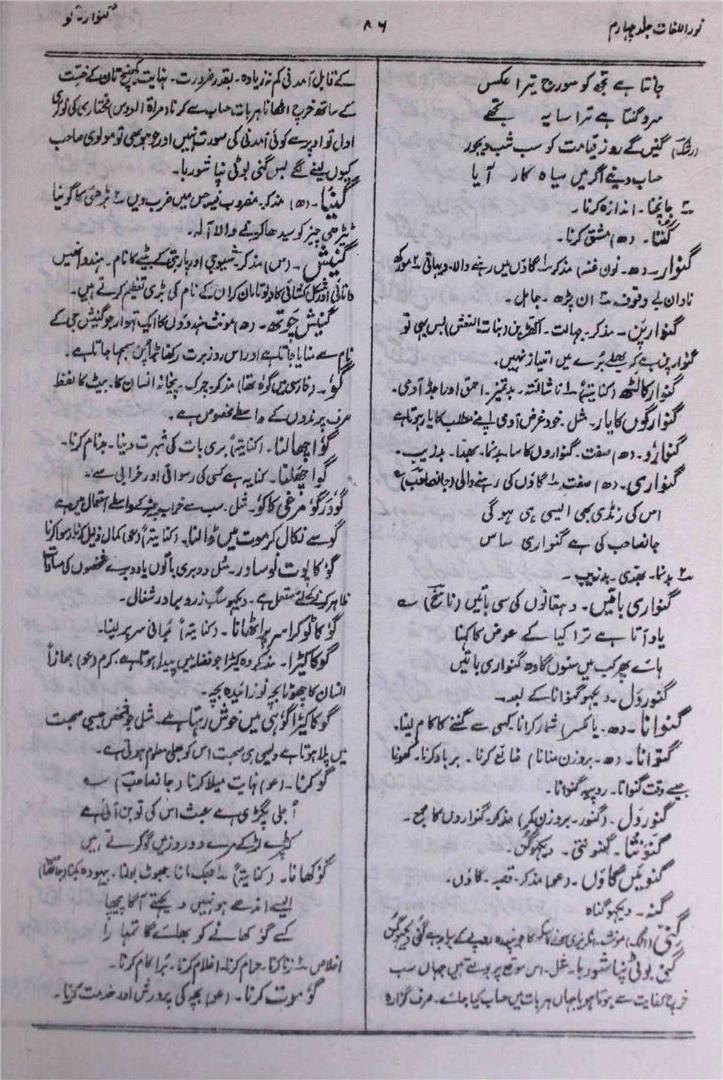 نور اللغات جلد چہارم
۸۶
گنوار۔ گو
جانتا ہے تجھ کو سورج تیرا عکس
مہ و گنتا ہے ترا سایہ تجھے
(رشک) گنیں گے روز قیامت کو سب شب دیجور
حساب دینے اگر میں سیاہ کار آیا
۲۔ جانچنا۔ اندازہ کرنا۔
گننا۔ (ھ) مشق کرنا۔
گنوار۔ (ھ۔ نون غنہ) مذکر ۱۔ گاؤں میں رہنے والا۔ دیہاتی ۲۔ مورکھ
نادان بے وقوف ۳۔ ان پڑھ۔ جاہل۔
گنوار پن۔ مذکر۔ جہالت۔ اکھڑپن (بنات النعش) بس یہی تو
گنوار پن ہے کہ بھلے برے میں امتیاز نہیں۔
گنوار کا لٹھ (کنایتہً) ۱۔ ناشائستہ۔ بدتمیز۔ احمق اور جڈ آدمی۔
گنوار گوں کا یار۔ مثل۔ خود غرض آدمی اپنے مطلب کا یار ہوتا ہے
گنوارو۔ (ھ) صفت۔ گنواروں کا سا۔ بدنما۔ بھدا۔ بدزیب۔
گنواری۔ (ھ) صفت ۱۔ گاؤں کی رہنے والی (جانصاحب)
اس کی رنڈی بھی ایسی ہی ہو گی
جانصاحب کی ہے گنواری ساس
۲۔ بدنما۔ بھدی۔ بدزیب۔
گنواری باتیں۔ دہقانوں کی سی باتیں (ناسخ)
یاد آتا ہے ترا کیا کے عوض کا کہنا
ہائے پھر کب میں سنوں گا وہ گنواری باتیں
گنوردل۔ دیکھو گنوانا کے بعد۔
گنوانا۔ (ھ۔ بالکسر) شمار کرانا۔ کسی سے گننے کا کام لینا۔
گنوانا۔ (ھ۔ بروزن منانا) ضائع کرنا۔ برباد کرنا۔ کھونا
جیسے وقت گنوانا۔ روپیہ گنوانا۔
گنوردل۔ (گنور۔ بروزن) مذکر۔ گنواروں کا مجمع۔
گنونتا۔ گنونتی۔ دیکھو گن۔
گنویں گاؤں۔ (عو) مذکر۔ قصبہ۔ گاؤں۔
گنہ۔ دیکھو گناہ
گنی (انگ) مونث۔ انگریزی سونے کا سکہ جو پندرہ روپے کے برابر ہے گنی دیکھو گن
گنی بوٹی نپا شوربا۔ مثل۔ اس موقع پر بولتے ہیں جہاں سب
خرچ کفایت سے ہوتا ہو یا جہاں ہر بات میں حساب کیا جائے۔ صرف گزارہ
کے قابل آمدنی کم نہ زیادہ۔ بقدر ضرورت۔ نہایت کھینچ تان کے خست
کے ساتھ خرچ اٹھانا ہر بات حساب سے کرنا (مراۃ العروس) مختاری کی نوکری
اول تو اوپر سے کوئی آمدنی کی صورت نہیں اور جو ہو بھی تو مولوی صاحب
کیوں لینے لگے بس گنی بوٹی نپا شوربا۔
گنیا۔ (ھ) مذکر۔ جس میں ضرب دیں ۲۔ بڑھئی کا گونیا
ٹیڑھی چیز کو سیدھا کرنے والا آلہ۔
گنیش۔ (س) مذکر۔ شیوجی اور پاربتی کے بیٹے کا نام۔ ہندو انھیں
دانائی اور مشکل کشائی کا دیوتا مان کر ان کے نام کی بڑی تعظیم کرتے ہیں۔
گنیش چوتھ۔ (ھ) مونث۔ ہندوؤں کا ایک تہوار جو گنیش جی کے
نام سے منایا جاتا ہے اور اس روز برت رکھنا سمجھا جاتا ہے۔
گو۔ (فارسی میں گوہ تھا) مذکر۔ چرک۔ پیخانہ انسان کا۔ بیٹ کا لفظ
صرف پرندوں کے واسطے مخصوص ہے۔
گو اچھالنا۔ (کنایتہً) بری بات کی شہرت دینا۔ بدنام کرنا۔
گو اچھلنا۔ کنایہ ہے کسی کی رسوائی اور خرابی سے۔
گودر گو مرغی کا گو۔ مثل۔ سب سے خراب چیز کے واسطے استعمال میں ہے
گو سے نکال کر موت میں ڈالنا۔ (کنایتہً) (عو) کمال ذلیل کرنا۔ رسوا کرنا
گو کا پوت نوسادر۔ مثل۔ دو بری باتوں یا دو برے شخصوں کی مساوات
ظاہر کرنے کے لئے مستعمل ہے۔ دیکھو سگ زرد برادر شغال۔
گو کا ٹوکرا سر پر اٹھانا۔ (کنایتہً) برائی سر پر لینا۔
گو کا کیڑا۔ مذکر۔ وہ کیڑا جو فضلہ میں پیدا ہوتا ہے۔ کرم (عو) مجازاً
انسان کا چھوٹا بچہ نوزائیدہ بچہ۔
گو کا کیڑا گو ہی میں خوش رہتا ہے۔ مثل جو شخص جیسی صحبت
میں پلا ہوتا ہے ویسی ہی صحبت اس کو بھلی معلوم ہوتی ہے۔
گو کرنا۔ (عو) نہایت میلا کرنا (جانصاحب)
اجلی پگڑی ہے عبث اس کی تو بن آئی ہے
کپڑے لڑکے مرے دو روز میں گو کرتے ہیں
گو کھانا۔ (کنایتہً) ۱۔ جھک مارنا۔ جھوٹ بولنا۔ بیہودہ بکنا (جانصاحب)
ایسے اندھے ہو نہیں دیکھتے آگا پیچھا
کے گو کھانے کو بھلے گا تمھارا
اغلاص ۲۔ زنا کرنا۔ حرام کرنا۔ اغلام کرنا۔ برا کام کرنا۔
گو موت کرنا۔ (عو) بچہ کی پرورش اور خدمت کرنا۔